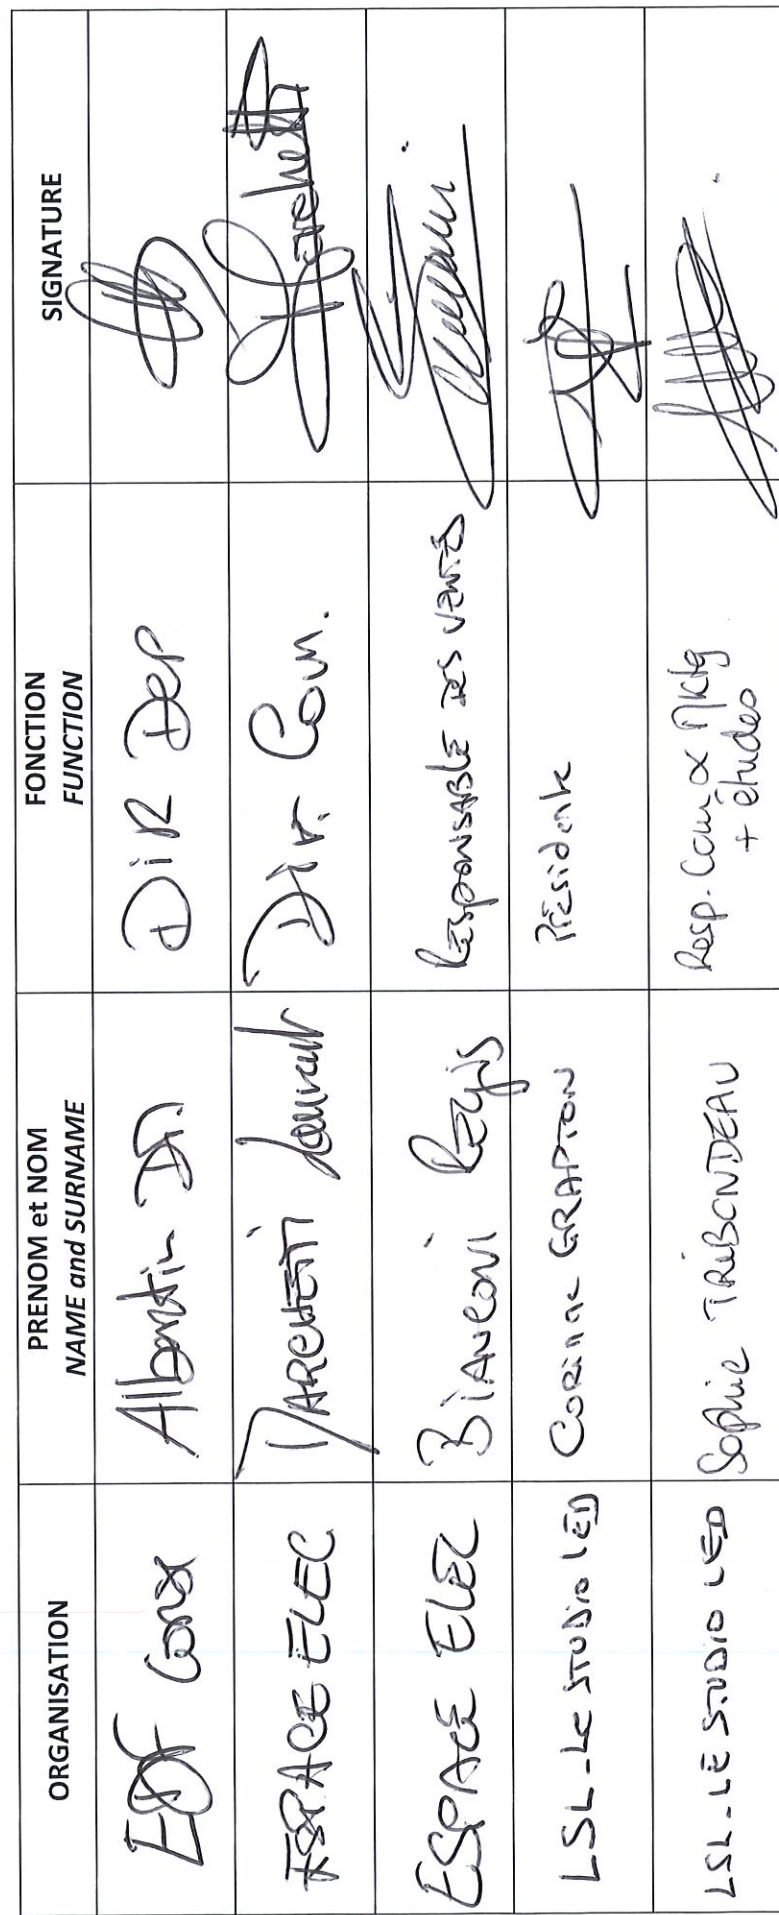 ORGANISATION
PRENOM et NOM
NAME and SURNAME
FONCTION
FUNCTION
SIGNATURE
EDF Corse
Albertin
DiR Dep
ESPACE ELEC
MARCHETTI Laurent
Dir. Com.
ESPACE ELEC
BiANCONi REGis
RESPONSABLE DES VENTES
LSL - LE STUDiO LED
CORinne GRAPTON
Présidente
LSL - LE STUDiO LED
Sophie TRiBONDEAU
Resp. Com & Mktg
+ études